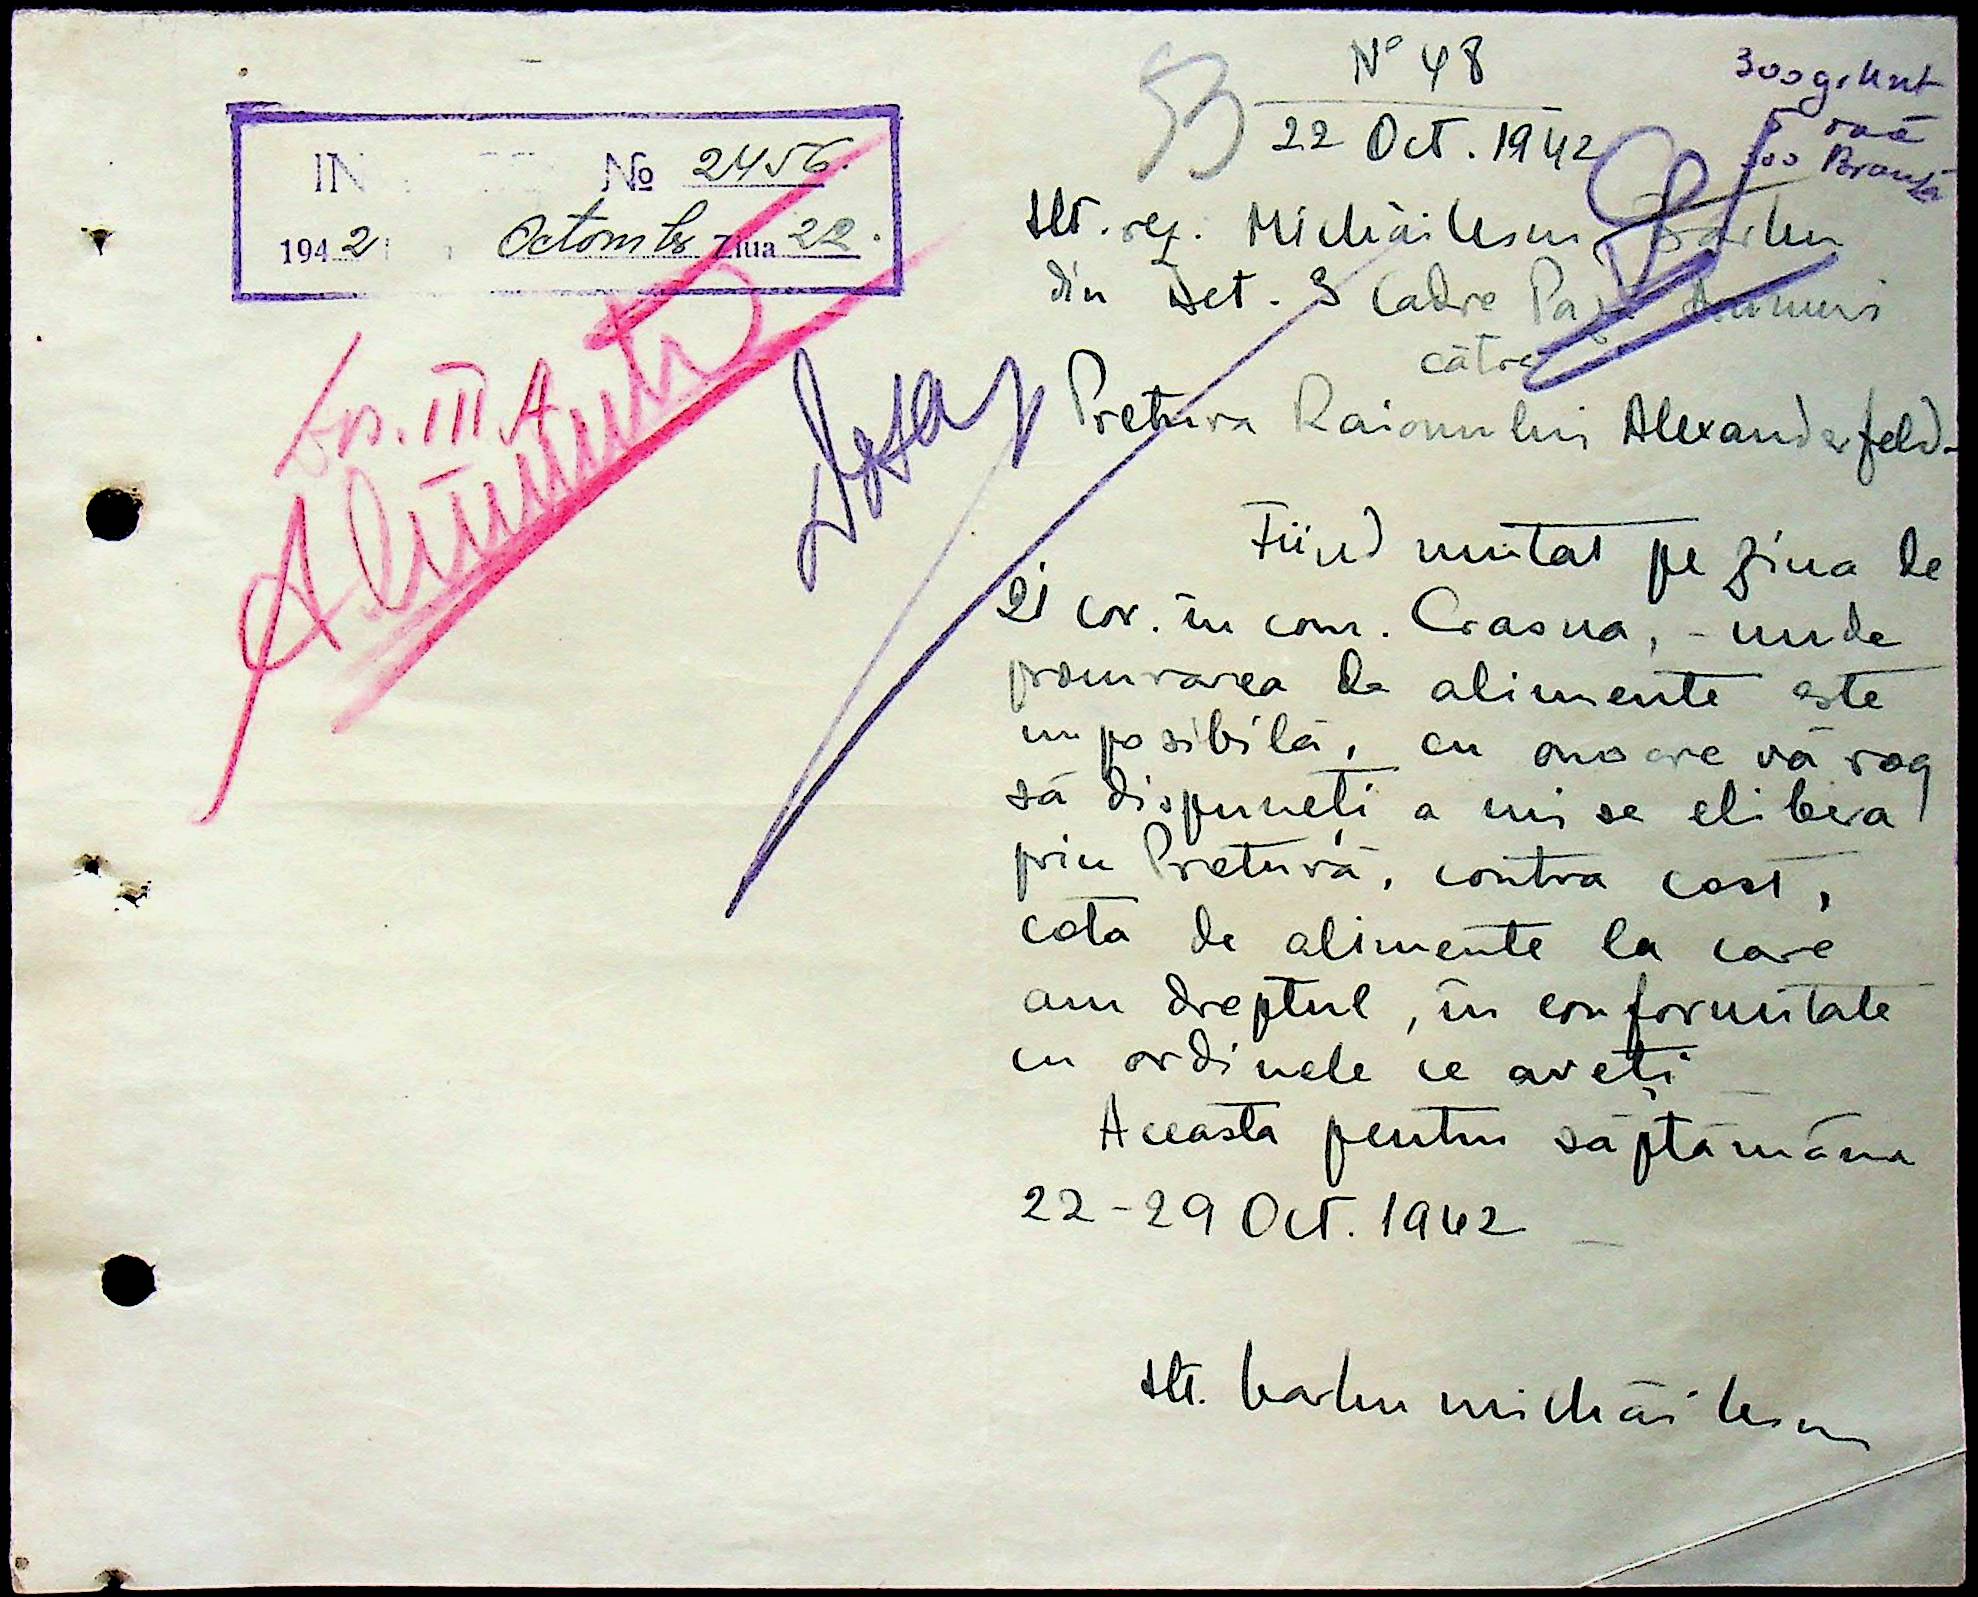 No 2456
1942 Octombr Ziua 22.
III A
Aliment
Dosar
53
No 48
22 Oct. 1942
300 gr. Unt
5 ouă
500 Branză
Slt. rez. Michăilescu Barbu
din Det. 3 Cadre Pază Drumuri
către
Pretura Raionului Alexanderfeld-
Fiind mutat pe ziua de
21 cor. în com. Crasna, - unde
procurarea de alimente este
imposibilă, cu onoare vă rog
să dispuneți a mi se elibera
prin Pretură, contra cost,
cota de alimente la care
am dreptul, în conformitate
cu ordinele ce aveți
Aceasta pentru săptămâna
22-29 Oct. 1942
Slt. Barbu Michăilescu